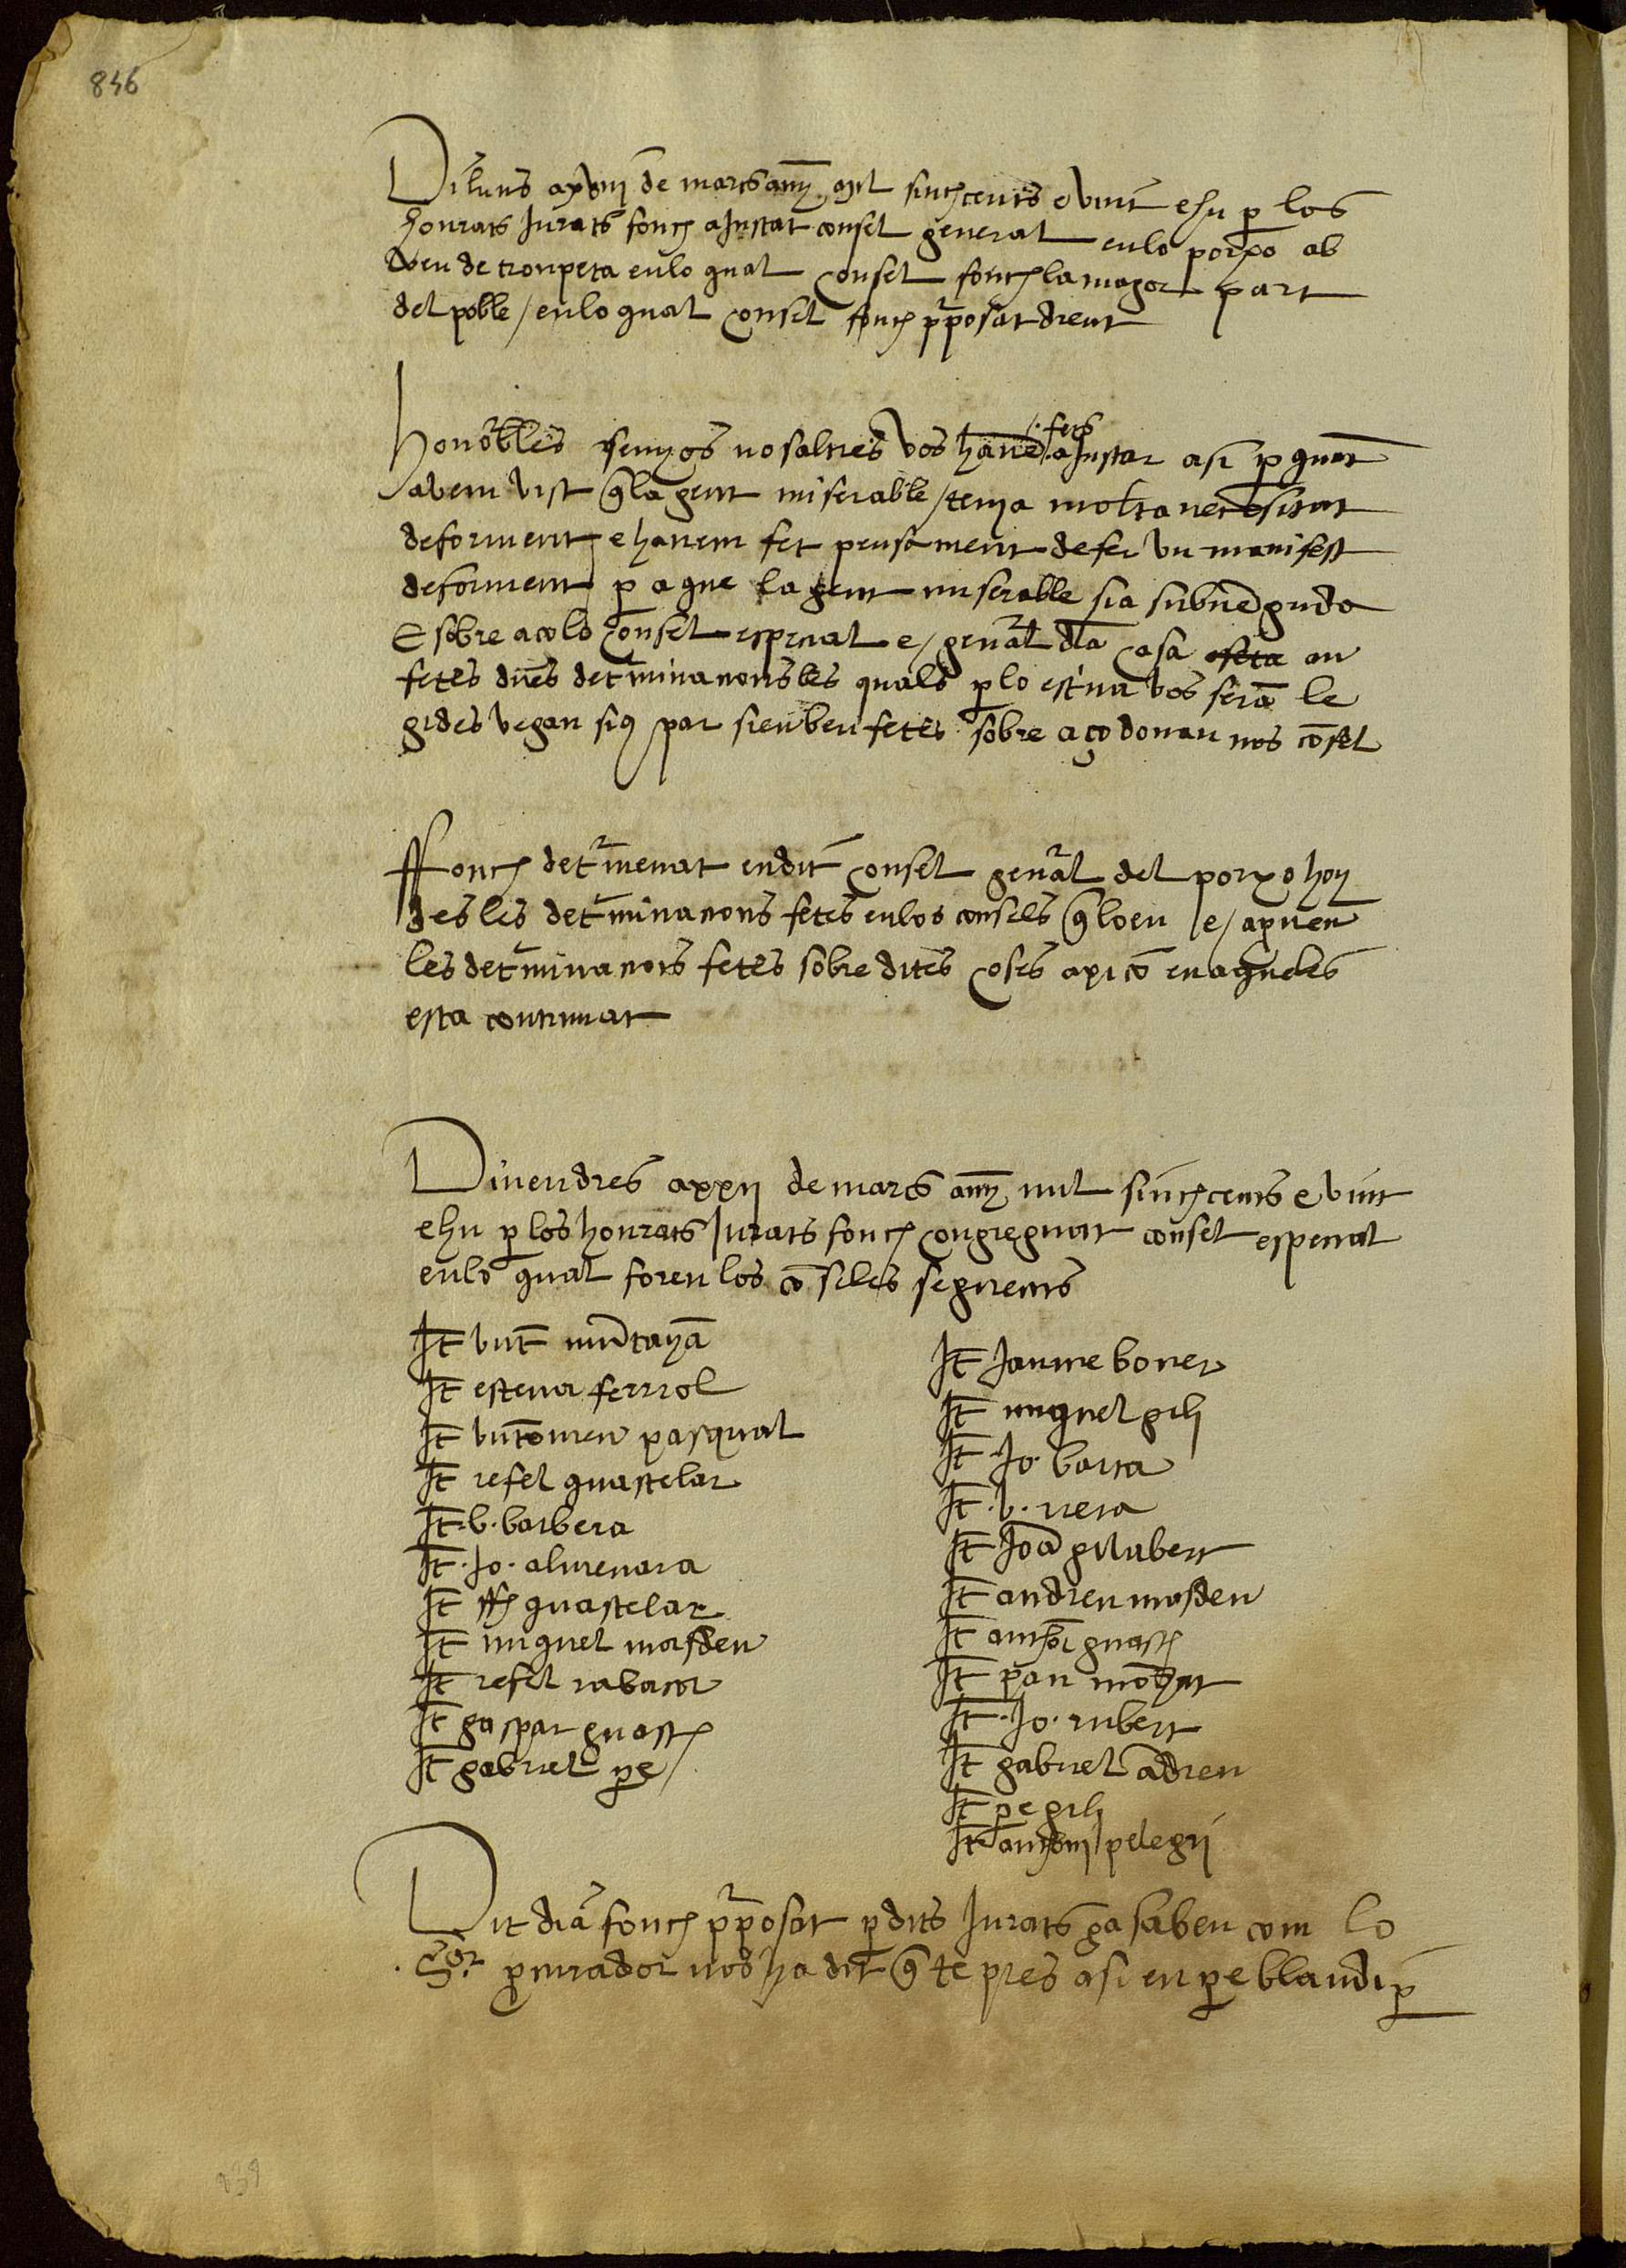 846
Diluns a xviii de mars any mil sinch cents e vint e hu per los
honrats Jurats fonch aJustat consel general en lo porxo ab
veu de tronpeta en lo qual consel fonch la magor part
del poble / en lo qual consel fonch proposat dient
honorbles senyos nosaltres vos havem fets aJustar asi per quant
avem vist que la gent miserable / tenia molta necesitat
de forment e havem fet pensament de fer un manifest
de forment per a que la gent miserable sia subvenguda
E sobre aco lo consel especial e / general dla casa an
fetes dues determinacions les quals per lo escriva vos seran le
gides vegan sius par sien ben fetes sobre aço donau nos consel
ffonch determenat en dit consel general del porxo hoy
des les determinacions fetes en los consels que loen e / aproven
les determinacions fetes sobre dites coses axi com en aqueles
esta continuat
Divendres a xxii de mars any mil sinch cents e vint
e hu per los honrats Jurats fonch congreguat consel especial
en lo qual foren los conseles seguients
It vnt muntayā
It esteva ferriol
It bertomeu pasqual
It refel guastelar
It .b. barbera
It .Jo. almenara
It ffh guastelar
It miquel masdeu
It refel
It gaspar guasch
It gabriel pe /
It Jaume boner
It miquel gili
It .Jo. barta
It .b. riera
It Joā gilabert
It andreu masdeu
It anthoi guasch
It pau
It .Jo. rubert
It gabriel ādreu
It pe gili
It anthoni pelegri
Dit dia fonch proposat per dits Jurats ga saben com lo
Sor procurador nos ha dit que te pres asi en pe blandi per
839